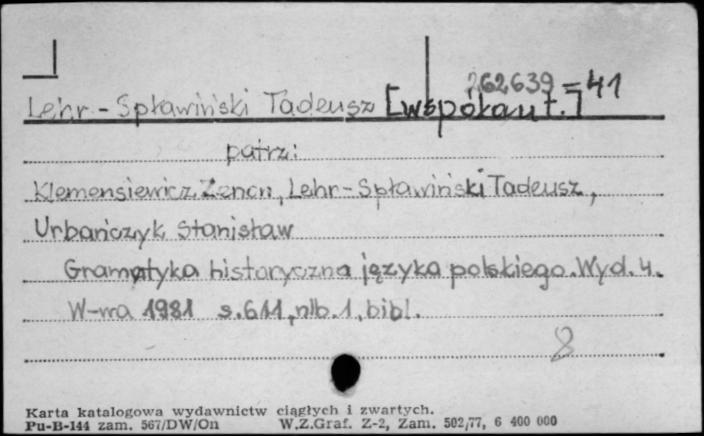 262639 = 41
Lehr-Spławiński Tadeusz [współaut.]
patrz:
Klemensiewicz Zenon, Lehr-Spławiński Tadeusz,
Urbańczyk Stanisław
Gramatyka historyczna języka polskiego. Wyd. 4.
W-wa 1981 s. 611, nlb. 1, bibl.
8
Karta katalogowa wydawnictw ciągłych i zwartych.
Pu-B-144 zam. 567/DW/On W.Z.Graf. Z-2, Zam. 502/77, 6 400 000